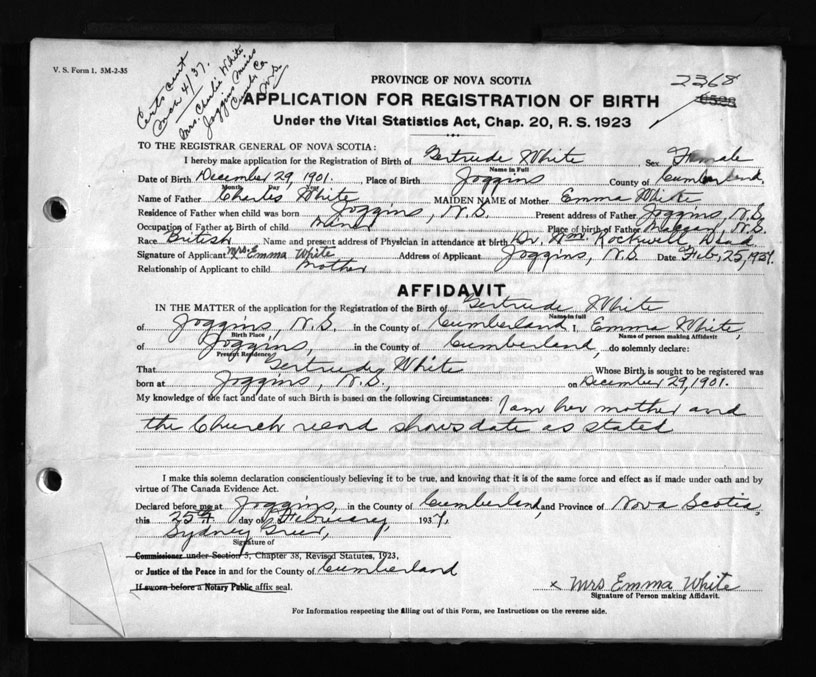 V. S. Form 1. 5M-2-35
Certs sent
Mch 4/37.
Mrs Charlie White
Joggins Mines
Cumb Co
N.S.
2368
PROVINCE OF NOVA SCOTIA
APPLICATION FOR REGISTRATION OF BIRTH
Under the Vital Statistics Act, Chap. 20, R. S. 1923
TO THE REGISTRAR GENERAL OF NOVA SCOTIA:
I hereby make application for the Registration of Birth of Gertrude White Sex Female
Name in Full
Date of Birth December 29, 1901. Place of Birth Joggins County of Cumberland.
Month Day Year
Name of Father Charles White MAIDEN NAME of Mother Emma White
Residence of Father when child was born Joggins, N.S. Present address of Father Joggins, N.S.
Occupation of Father at Birth of child Miner Place of birth of Father Maccan, N.S.
Race British Name and present address of Physician in attendance at birth Dr. Wm. Rockwell Dead
Signature of Applicant x Mrs. E Emma White Address of Applicant Joggins, N.S. Date Feb, 25, 1937.
Relationship of Applicant to child Mother
AFFIDAVIT
IN THE MATTER of the application for the Registration of the Birth of Gertrude White
Name in full
of Joggins, N.S. in the County of Cumberland I, Emma White,
Birth Place, Name of person making Affidavit
of Joggins, in the County of Cumberland, do solemnly declare:
Present Residence
That Gertrude White Whose Birth is sought to be registered was
born at Joggins, N.S., on December 29, 1901.
My knowledge of the fact and date of such Birth is based on the following Circumstances: I am her mother and
the Church record shows date as stated
I make this solemn declaration conscientiously believing it to be true, and knowing that it is of the same force and effect as if made under oath and by
virtue of The Canada Evidence Act.
Declared before me at Joggins, in the County of Cumberland, and Province of Nova Scotia,
this 25th day of February, 1937,
Sydney Greer,
Signature of
Commissioner under Section 5, Chapter 38, Revised Statutes, 1923,
or Justice of the Peace in and for the County of Cumberland
If sworn before a Notary Public affix seal.
x Mrs Emma White
Signature of Person making Affidavit.
For Information respecting the filling out of this Form, see Instructions on the reverse side.